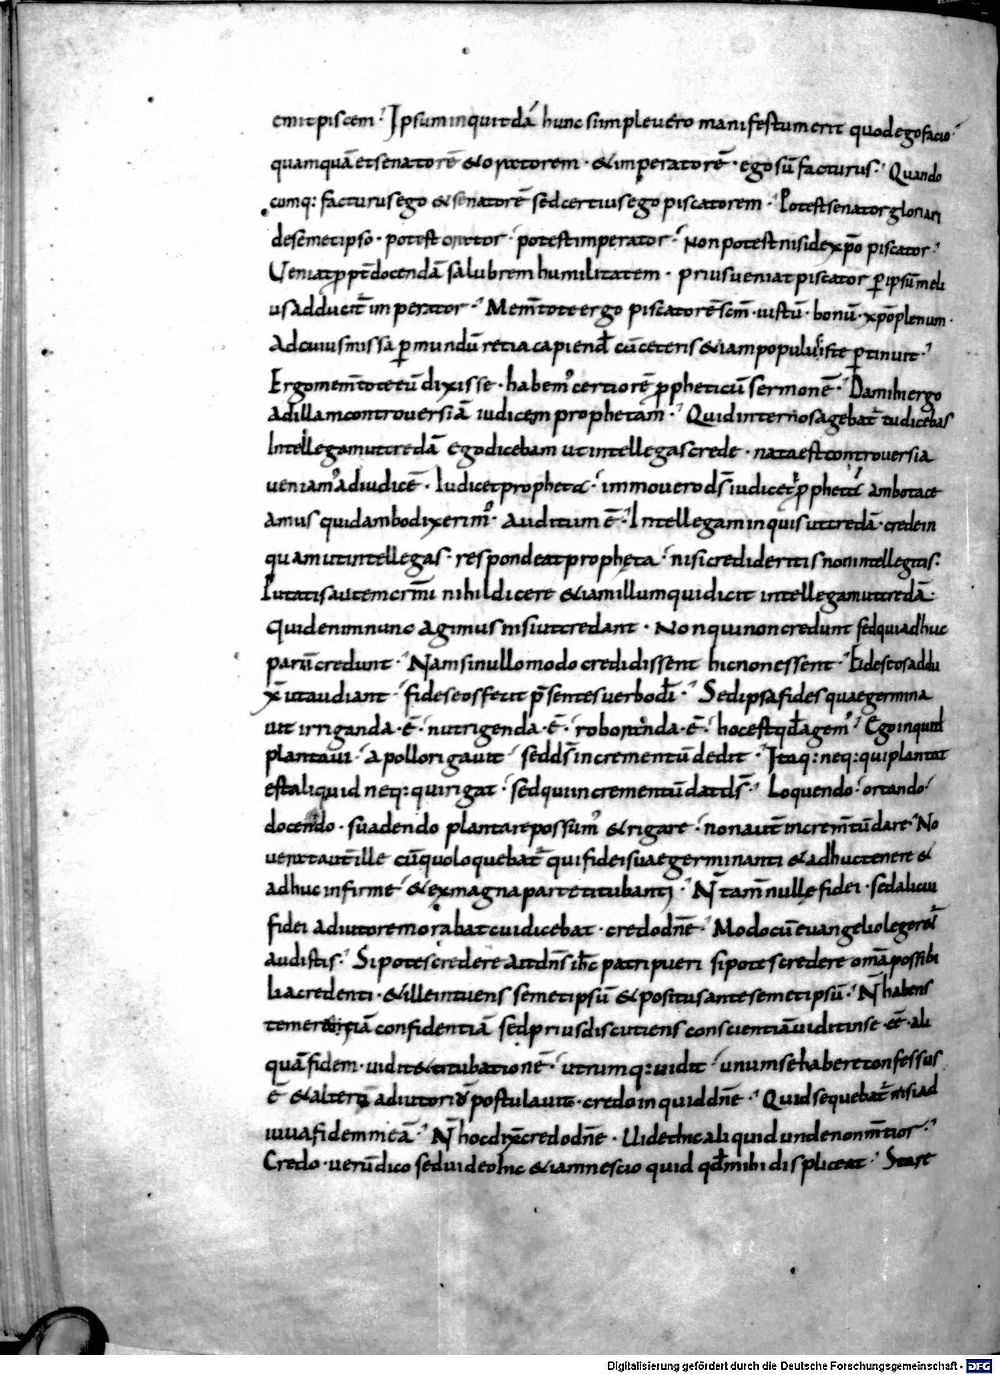 emit piscem · Ipsum inquit dā hunc sũ impleuero manifestum erit quod ego facio ·
quamquā et senatorē & oratorem · & imperatorē · ego sũ facturus · Quando
cumq: facturus ego & senatorē sed certius ego piscatorem · Potest senator gloriari
de semetipso · potest orator · potest imperator · Non potest nisi de xp̄o piscator ·
Veniat ppt̄ docendā salubrem humilitatem · prius ueniat piscator p̱ ipsũ meli
us adducit̄ imperator · Mem̄tote ergo piscatorē sc̄m · iustũ · bonũ · xp̄o plenum ·
Ad cuius missa p̱ mundũ retia capiend̄ cũ ceteris & iam populus iste p̱tinuit ·
Ergo mem̄tote eũ dixisse · habem' certiorē ppheticũ sermonē · Da mihi ergo
ad illam controuersiā iudicem prophetam · Quid inter nos agebat̄ tu dicebas
Intellegam ut credā Ego dicebam ut intellegas crede · nata est controuersia
ueniam' ad iudicē · Iudicet propheta · immo uero ds̄ iudicet p pphetā ambo tace
amus quid ambo dixerim' · auditum ē · Intellegam inquis ut credā · crede in
quam ut intellegas · respondeat propheta · nisi credideritis non intellegitis :
Putatis autem crm̄i nihil dicere & iam illum qui dicit intellegam ut credā ·
Quid enim nunc agimus nisi ut credant · Non qui non credunt sed qui adhuc
parũ credunt · Nam si nullo modo credidissent hic non essent · Fides eos addu
x̄ ut audiant · fides eos fecit p̄sentes uerbo dī · Sed ipsa fides quae germina
uit irriganda · ē · nutrigenda · ē · roboranda · ē · hoc est qd̄ agem' · Ego inquid
plantaui · apollo rigauit · sed ds̄ incrementũ dedit · Itaq: neq: qui plantat
est aliquid neq: qui rigat · sed qui incrementũ dat ds̄ · Loquendo · ortando ·
docendo · suadendo plantare possum' & rigare · non aut̄ increm̄tũ dare · No
uerat aut̄ ille cũ quo loquebat̄ qui fidei suae germinanti & adhuc tenere &
adhuc infirme & ex magna parte titubanti · N̄ tam̄ nulle fidei · sed alicui
fidei adiutorem orabat cui dicebat · credo dn̄e · Modo cũ euangelio legeret̄
audistis · Si potes credere ait dn̄s ih̄c patri pueri si potes credere oma possibi
lia credenti · & ille intuens semetipsũ & positus ante semetipsũ · N̄ habens
temerariā confidentiā sed prius discutiens conscientiā uidit in se · eē · ali
quā fidem · uidit & titubationē · utrumq: uidit · unum se habere confessus
ē & alteri adiutoriũ postulauit · credo inquid dn̄e · Quid sequebat̄ nisi ad
iuua fidem meā · N̄ hoc dix̄ credo dn̄e · Uideo hic aliquid unde non m̄tior ·
Credo · uerũ dico sed uideo hic & iam nescio quid qd̄ mihi displiceat · Stare
Digitalisierung gefördert durch die Deutsche Forschungsgemeinschaft - DFG